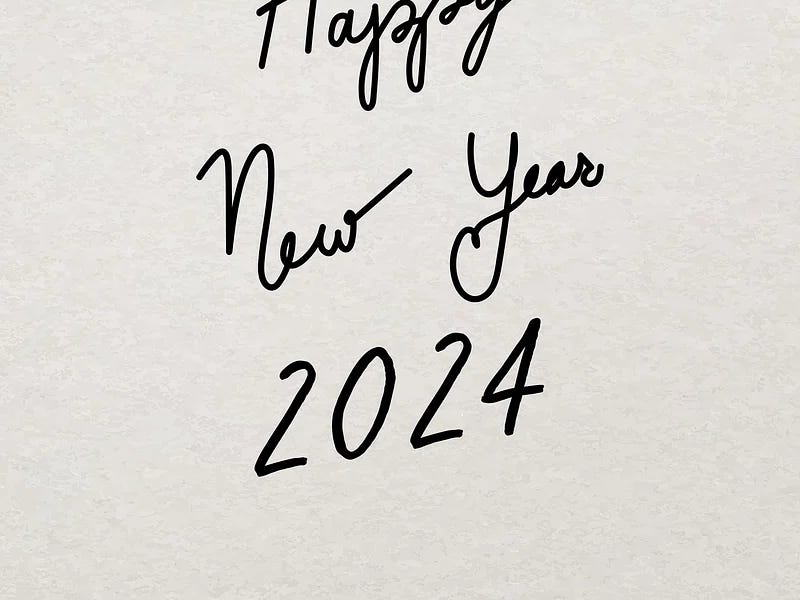 Happy
New Year
2024